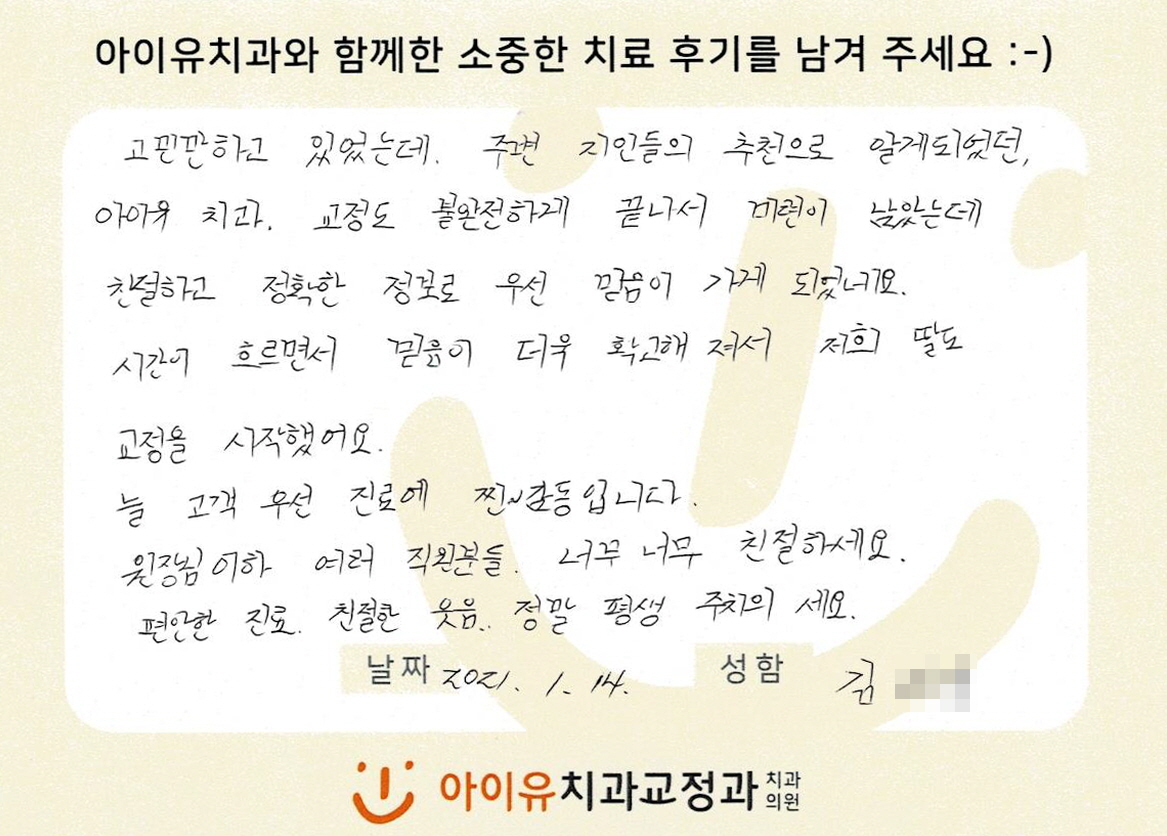 아이유치과와 함께한 소중한 치료 후기를 남겨 주세요 :-)
고민만하고 있었는데. 주변 지인들의 추천으로 알게되었던,
아이유 치과. 교정도 불완전하게 끝나서 미련이 남았는데
친절하고 정확한 정보로 우선 믿음이 가게 되었네요.
시간이 흐르면서 믿음이 더욱 확고해 져서 저희 딸도
교정을 시작했어요.
늘 고객 우선 진료에 찐~감동입니다.
원장님이하 여러 직원분들. 너무 너무 친절하세요.
편안한 진료. 친절한 웃음.. 정말 평생 주치의 세요.
날짜 2021. 1. 14. 성함 김
아이유치과교정과 치과의원